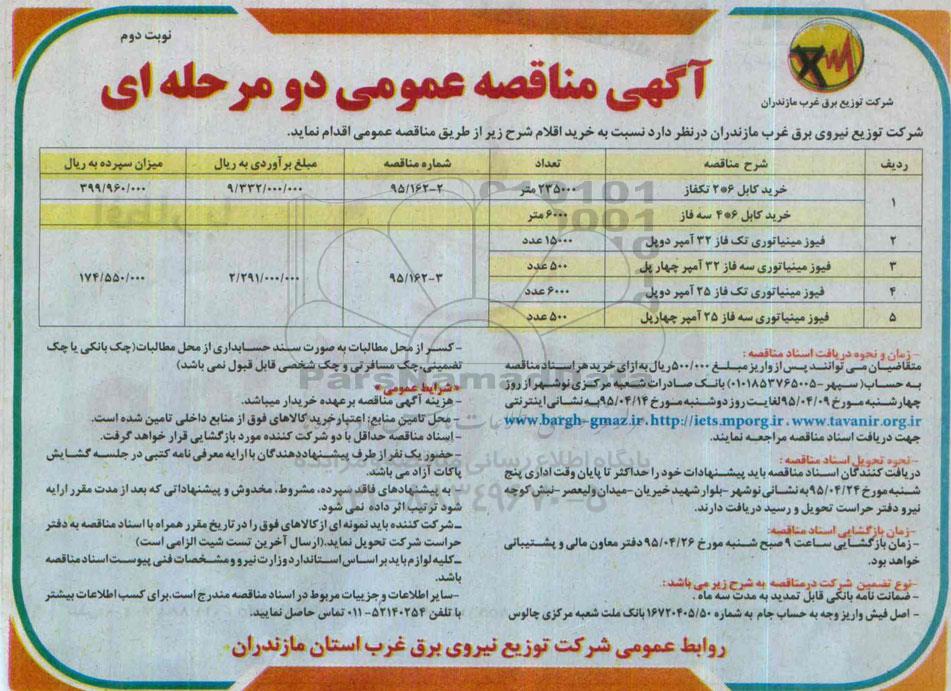 نوبت دوم
شرکت توزیع برق غرب مازندران
آگهی مناقصه عمومی دو مرحله ای
شرکت توزیع نیروی برق غرب مازندران درنظر دارد نسبت به خرید اقلام شرح زیر از طریق مناقصه عمومی اقدام نماید.
ردیف شرح مناقصه تعداد شماره مناقصه مبلغ برآوردی به ریال میزان سپرده به ریال
۱ خرید کابل ۶*۲ تکفاز ۲۳۵۰۰۰ متر ۹۵/۱۶۲-۲ ۹/۳۳۲/۰۰۰/۰۰۰ ۳۹۹/۹۶۰/۰۰۰
خرید کابل ۶*۴ سه فاز ۶۰۰۰ متر
۲ فیوز مینیاتوری تک فاز ۳۲ آمپر دوپل ۱۵۰۰۰ عدد
۳ فیوز مینیاتوری سه فاز ۳۲ آمپر چهار پل ۵۰۰ عدد ۹۵/۱۶۲-۳ ۲/۲۹۱/۰۰۰/۰۰۰ ۱۷۴/۵۵۰/۰۰۰
۴ فیوز مینیاتوری تک فاز ۲۵ آمپر دوپل ۶۰۰۰ عدد
۵ فیوز مینیاتوری سه فاز ۲۵ آمپر چهارپل ۵۰۰ عدد
- زمان و نحوه دریافت اسناد مناقصه :
متقاضیان می توانند پس از واریز مبلغ ۵۰۰/۰۰۰ ریال به ازای خرید هر اسناد مناقصه
به حساب( سپهر -۰۱۰۱۸۵۳۷۶۵۰۰۵) بانک صادرات شعبه مرکزی نوشهر از روز
چهارشنبه مورخ ۹۵/۰۴/۰۹ لغایت روز دوشنبه مورخ ۹۵/۰۴/۱۴ به نشانی اینترنتی
www.bargh-gmaz.ir.http://iets.mporg.ir.www.tavanir.org.ir
جهت دریافت اسناد مناقصه مراجعه نمایند.
-نحوه تحویل اسناد مناقصه :
دریافت کنندگان اسناد مناقصه باید پیشنهادات خود را حداکثر تا پایان وقت اداری پنج
شنبه مورخ ۹۵/۰۴/۲۴ به نشانی نوشهر -بلوار شهید خیریان -میدان ولیعصر -نبش کوچه
نیرو دفتر حراست تحویل و رسید دریافت دارند.
-زمان بازگشایی اسناد مناقصه:
-زمان بازگشایی ساعت ۹ صبح شنبه مورخ ۹۵/۰۴/۲۶ دفتر معاون مالی و پشتیبانی
خواهد بود.
-نوع تضمین شرکت درمناقصه به شرح زیر می باشد :
- ضمانت نامه بانکی قابل تمدید به مدت سه ماه .
- اصل فیش واریز وجه به حساب جام به شماره ۱۶۷۲۰۴۰۵/۵۰ بانک ملت شعبه مرکزی چالوس
-کسر از محل مطالبات به صورت سند حسابداری از محل مطالبات(چک بانکی یا چک
تضمینی،چک مسافرتی و چک شخصی قابل قبول نمی باشد)
*شرایط عمومی *
-هزینه آگهی مناقصه برعهده خریدار میباشد.
- محل تامین منابع: اعتبار خرید کالاهای فوق از منابع داخلی تامین شده است.
- اسناد مناقصه حداقل با دو شرکت کننده مورد بازگشایی قرار خواهد گرفت.
-حضور یک نفر از طرف پیشنهاددهندگان با ارایه معرفی نامه کتبی در جلسه گشایش
پاکات آزاد می باشد.
-به پیشنهادهای فاقد سپرده، مشروط، مخدوش و پیشنهاداتی که بعد از مدت مقرر ارایه
شود ترتیب اثر داده نمی شود.
-شرکت کننده باید نمونه ای از کالاهای فوق را در تاریخ مقرر همراه با اسناد مناقصه به دفتر
حراست شرکت تحویل نماید.(ارسال آخرین تست شیت الزامی است)
-کلیه لوازم باید بر اساس استاندارد وزارت نیرو و مشخصات فنی پیوست اسناد مناقصه
باشد.
-سایر اطلاعات و جزییات مربوط در اسناد مناقصه مندرج است.برای کسب اطلاعات بیشتر
با تلفن ۵۲۱۴۰۲۵۴-۰۱۱ تماس حاصل نمایید.
روابط عمومی شرکت توزیع نیروی برق غرب استان مازندران